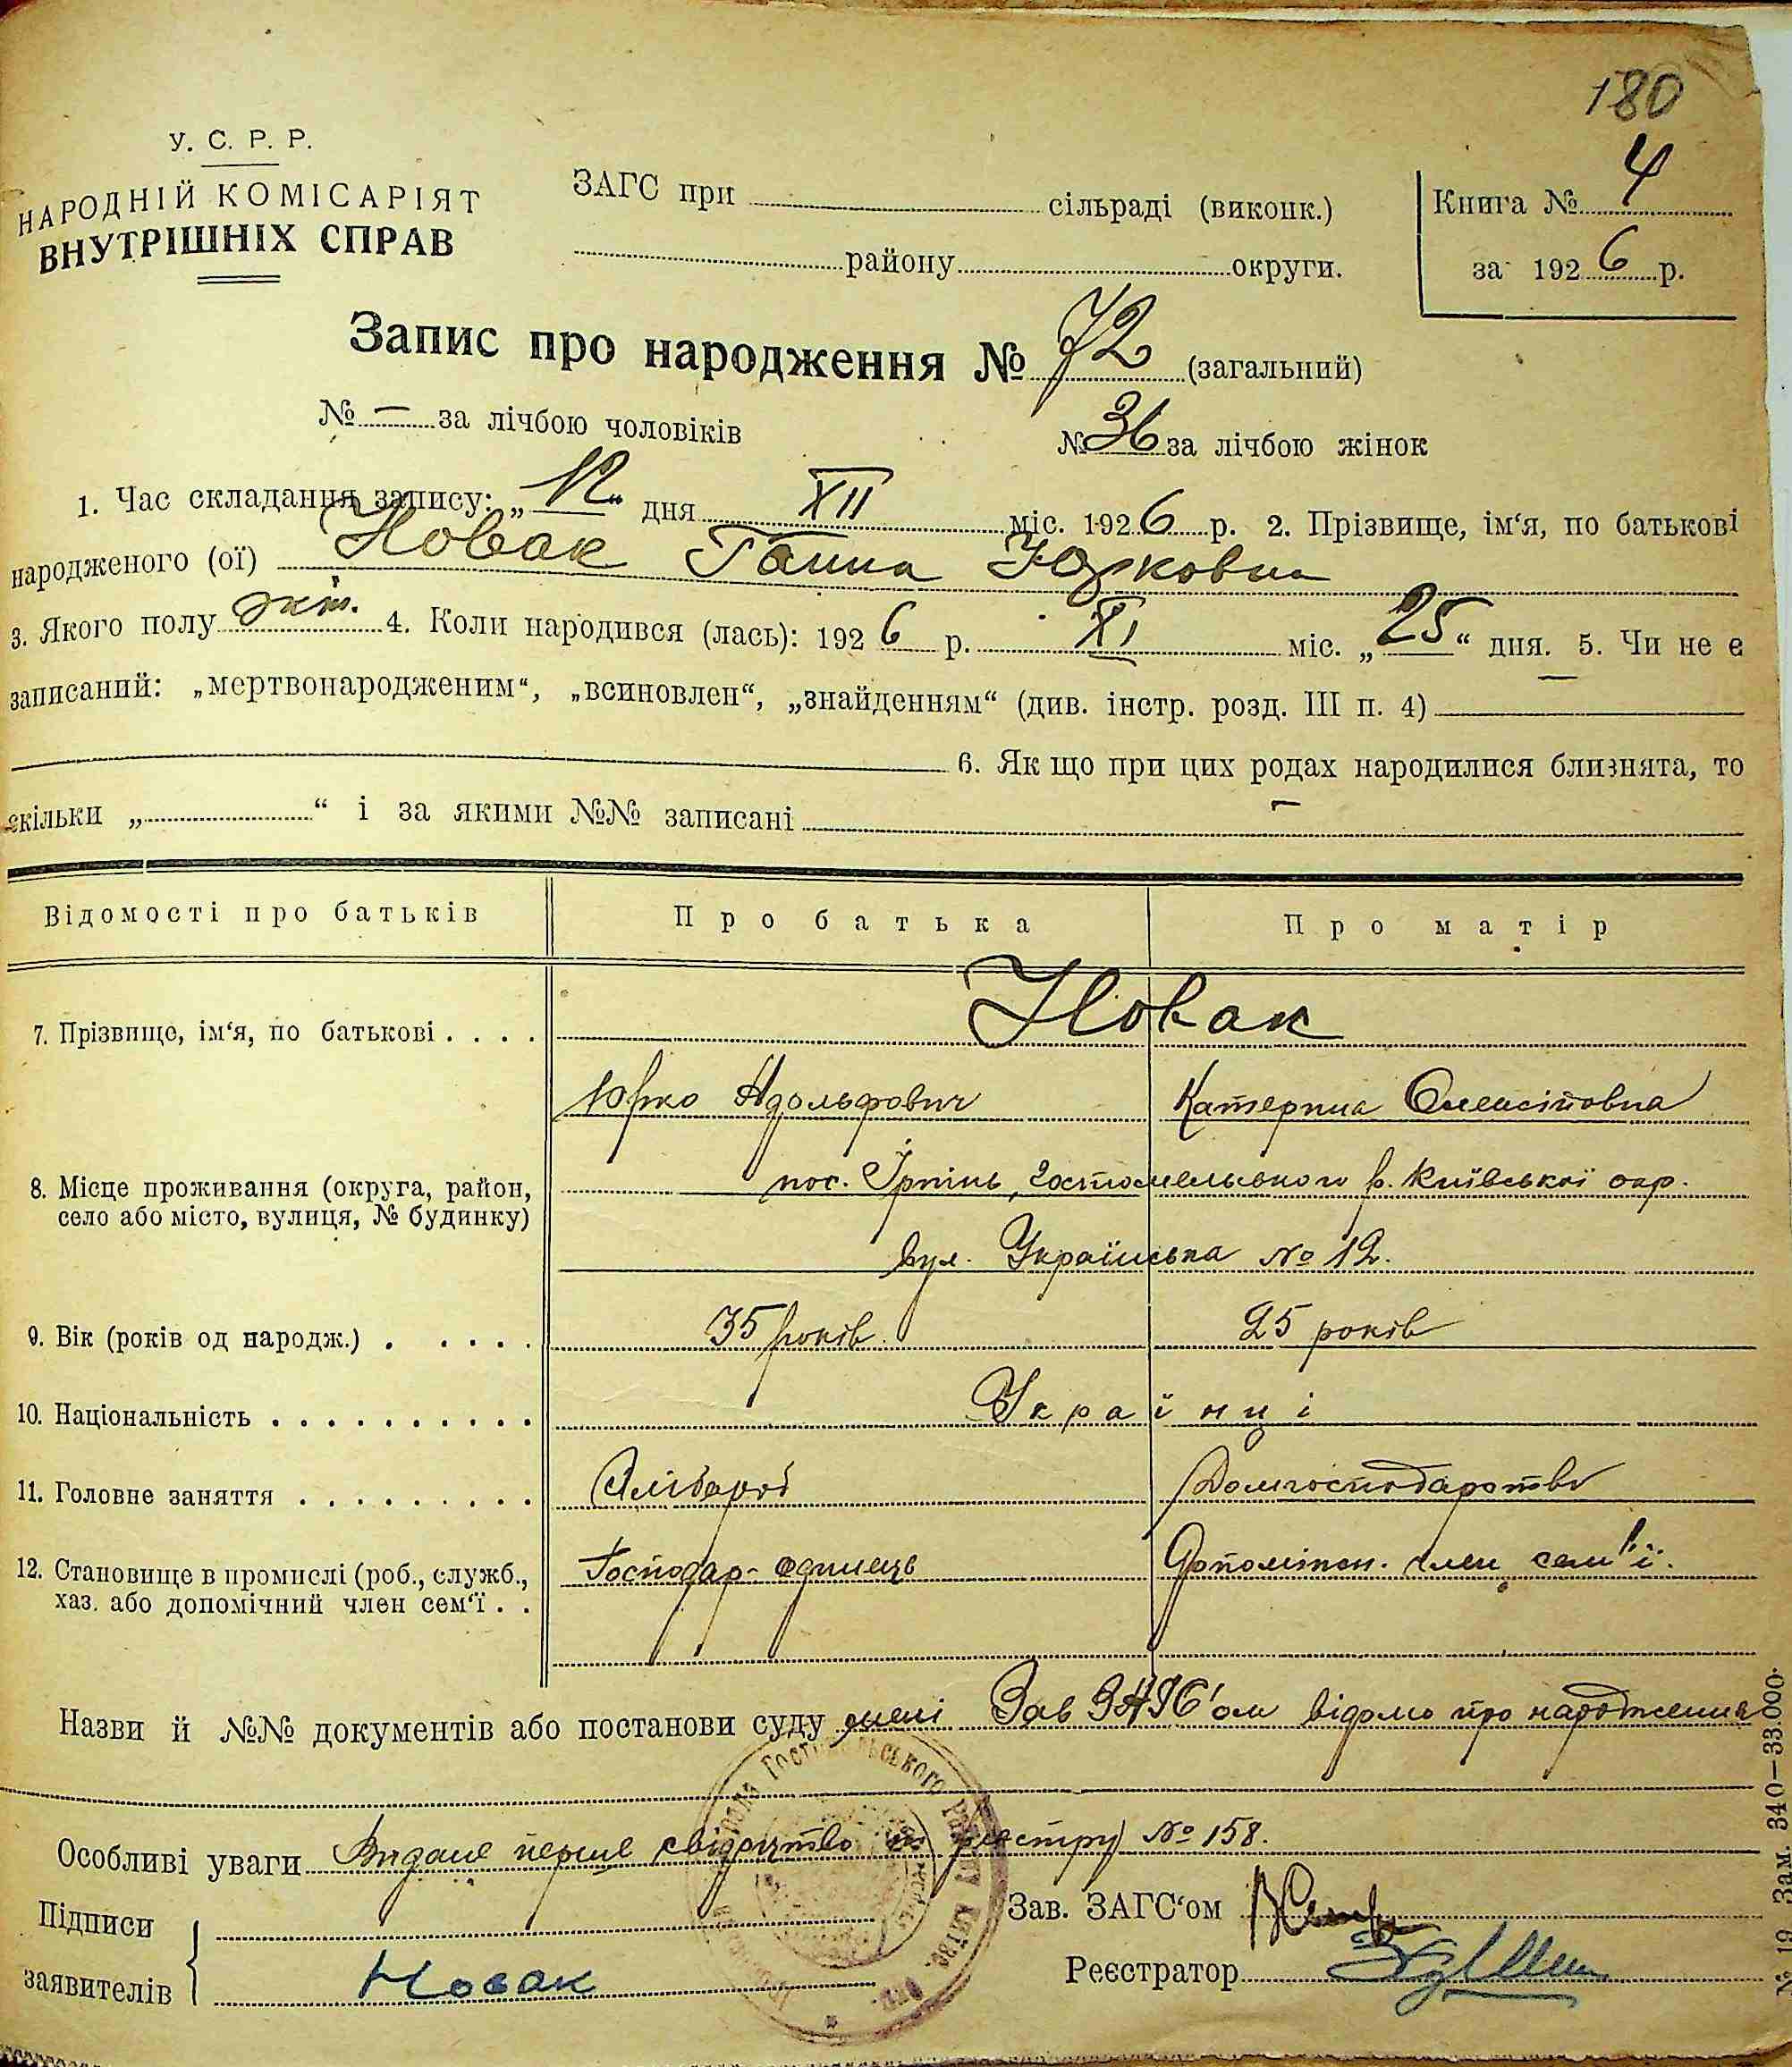 180
У. С. Р. Р.
НАРОДНІЙ КОМІСАРІЯТ
ВНУТРІШНІХ СПРАВ
ЗАГС при сільраді (виконк.)
району округи.
Книга № 4
за 1926 р.
Запис про народження № 72 (загальний)
№ — за лічбою чоловіків № 36 за лічбою жінок
1. Час складання запису: „12“ дня XII міс. 1926 р. 2. Прізвище, ім'я, по батькові
народженого (ої) Новак Ганна Юрковна
3. Якого полу жін. 4. Коли народився (лась): 1926 р. XI міс. „25“ дня. 5. Чи не є
записаний: „мертвонародженим“, „всиновлен“, „знайденням“ (див. інстр. розд. III п. 4) —
6. Як що при цих родах народилися близнята, то
скільки „ “ і за якими №№ записані —
Відомості про батьків Про батька Про матір
7. Прізвище, ім'я, по батькові . . . . Новак
Юрко Адольфович Катерина Олексіївна
8. Місце проживання (округа, район, пос. Ірпінь, Гостомельского р. Київської окр.
село або місто, вулиця, № будинку)
вул. Українська № 12.
9. Вік (років од народж.) . . . . . 35 років. 25 років
10. Національність . . . . . . . . . . . Українці
11. Головне заняття . . . . . . . . . . Домгосподарство
12. Становище в промислі (роб., служб., Господар-одинець Допоміжн. член сем'ї.
хаз. або допомічний член сем'ї . .
Назви й №№ документів або постанови суду Зав ЗАГС'ом відомо про народження
Особливі уваги Видане перше свідоцтво по реєстру № 158.
Підписи
заявителів Новак
Зав. ЗАГС'ом
Реєстратор
Гостомельського району Київ. окр.
№ 19 Зам. 340—33.000.